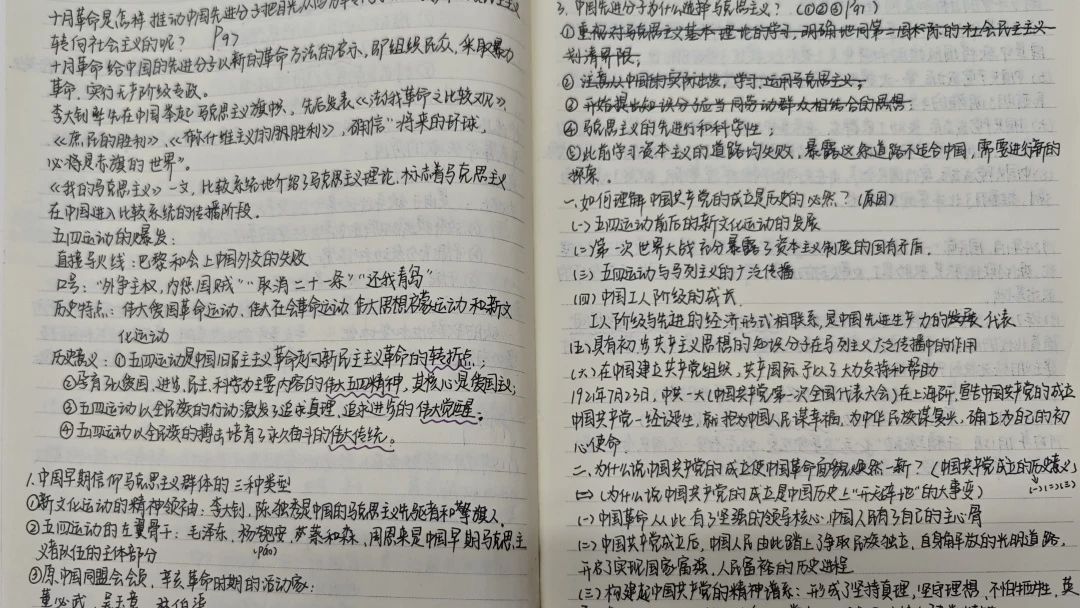 十月革命是怎样推动中国先进分子把目光从西方转向
转向社会主义的呢? P97
十月革命给中国的先进分子以新的革命方法的启示,即组织民众,采取暴力
革命,实行无产阶级专政。
李大钊率先在中国举起马克思主义旗帜。先后发表《法俄革命之比较观》、
《庶民的胜利》、《布尔什维主义的胜利》,确信“将来的环球,
必将是赤旗的世界”。
《我的马克思主义》一文,比较系统地介绍了马克思主义理论,标志着马克思主义
在中国进入比较系统的传播阶段。
五四运动的爆发:
直接导火线:巴黎和会上中国外交的失败
口号:“外争主权,内惩国贼”“取消二十一条”“还我青岛”
历史特点:伟大爱国革命运动、伟大社会革命运动 伟大思想启蒙运动 和新文
化运动
历史意义:①五四运动是中国旧民主主义革命走向新民主主义革命的转折点;
②孕育了以爱国、进步、民主、科学为主要内容的伟大五四精神,其核心是爱国主义;
③五四运动以全民族的行动激发了追求真理、追求进步的伟大觉醒。
④五四运动以全民族的搏击培育了永久奋斗的伟大传统。
1.中国早期信仰马克思主义群体的三种类型
①新文化运动的精神领袖:李大钊,陈独秀是中国的马克思主义先驱者和擎旗人。
②五四运动的左翼骨干:毛泽东,杨匏安,蔡和森,周恩来是中国早期马克思主
(páo)
义者队伍的主体部分
③原中国同盟会会员、辛亥革命时期的活动家:
董必武 吴玉章
3.中国先进分子为什么选择马克思主义?(①②③P91)
①重视对马克思主义基本理论的学习,明确地同第二国际的社会民主主义
划清界限;
②注意从中国的实际出发,学习、运用马克思主义;
③开始提出知识分子应当同劳动群众相结合的思想;
④马克思主义的先进性和科学性;
⑤此前学习资本主义的道路均失败,暴露这条道路不适合中国,需要进行新的
探索。
一、如何理解中国共产党的成立是历史的必然?(原因)
(一)五四运动前后的新文化运动的发展
(二)第一次世界大战充分暴露了资本主义制度的固有矛盾。
(三)五四运动与马列主义的广泛传播
(四)中国工人阶级的成长
工人阶级与先进的经济形式相联系,是中国先进生产力的发展代表
(五)具有初步共产主义思想的知识分子在马列主义广泛传播中的作用
(六)在中国建立共产党组织,共产国际予以了大力支持和帮助
1921年7月23日,中共一大(中国共产党第一次全国代表大会)在上海召开,宣告中国共产党的成立
中国共产党一经诞生,就把为中国人民谋幸福、为中华民族谋复兴,确立为自己的初
心使命
二、为什么说中国共产党的成立使中国革命面貌焕然一新?(中国共产党成立的历史意义)
(为什么说中国共产党的成立是中国历史上“开天辟地”的大事变) (一)(二)(三)
(一)中国革命从此有了坚强的领导核心,中国人民有了自己的主心骨
(二)中国共产党成立后,中国人民由此踏上了争取民族独立、自身解放的光明道路,
开启了实现国家富强、人民富裕的历史进程
(三)构建起中国共产党的精神谱系:形成了坚持真理、坚守理想,不怕牺牲、英